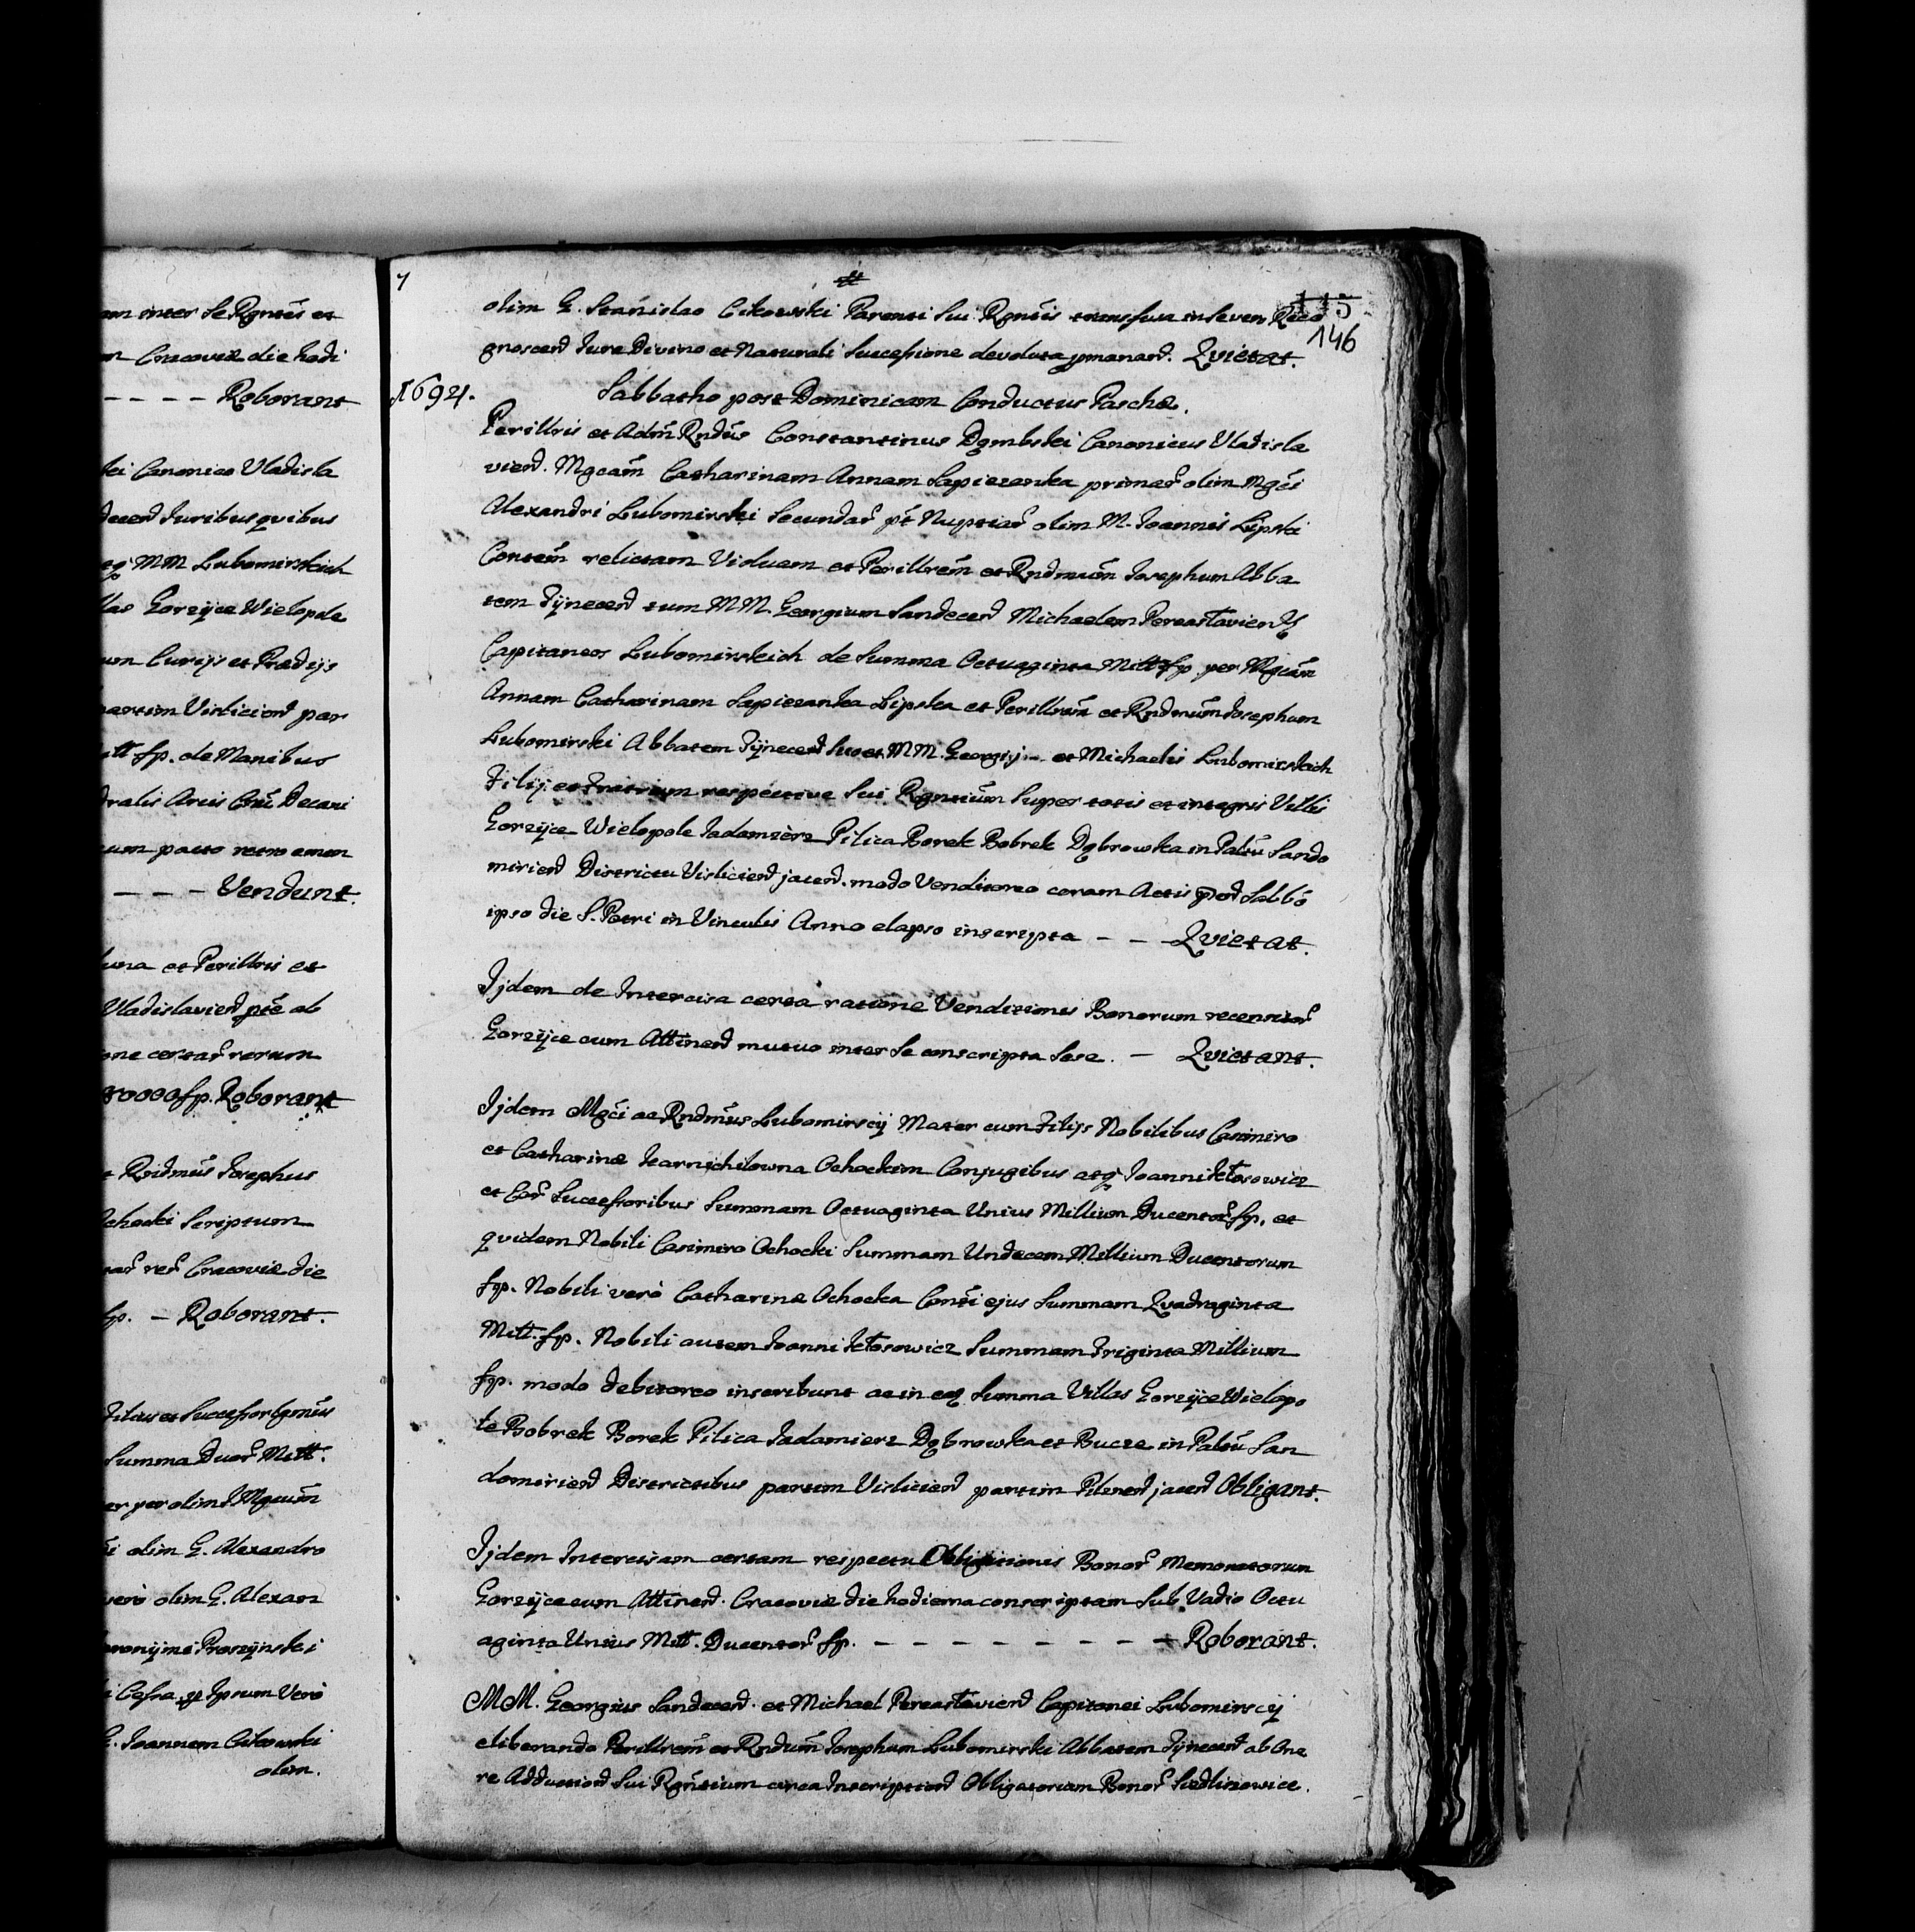 om inter se Rgntes et
m Cracoviæ die hodi
– – – – Roborant
ki Canonico Vladisla
decen Juribus quibus
atq MM Lubomirskich
llas Gorzÿce Wielopole
um Curijs et Prædijs
partim Vislicien par
ll fp. de Manibus
dralis Arcis Crac Decani
um pacto retro emen
– – – Vendunt.
una et Perillris et
Vladislavien pte ab
one certar rerum
80000 fp. Roborant
t Rndmus Josephus
chocki Scriptum
nar rer Cracoviæ die
fp. – Roborant.
Filius et Successor Ignus
Summa Duor Mill.
er per olim Mgcum
i olim G. Alexandro
vero olim G. Alexan
eronijmi Proszÿnski
i Cessa et Ipsum Vero
G. Joannem Cikowski
olim.
7
115
146
olim G. Stanislao Cikowski Parenti sui Rgntis transfusa in seven Reco
gnoscen Jure Divino et Naturali Successione devoluta pmanan. Qvietat.
1694.
Sabbatho post Dominicam Conductus Paschæ.
Perillris et Adm Rndus Constantinus Dąmbski Canonicus Vladisla
vien. Mgcam Catharinam Annam Sapiezanka primar olim Mgci
Alexandri Lubomirski Secundar pt Nuptiar olim M. Joannis Lipski
Contem relictam Viduam et Perillrem et Rndmum Josephum Abba
tem Tÿnecen tum MM. Georgium Sandecen Michaelem Pereasłavien
Capitaneos Lubomirskich de Summa Octuaginta Mill fp. per Mgcam
Annam Catharinam Sapiezanka Lipska et Perillrem et Rndmum Josephum
Lubomirski Abbatem Tÿnecen suo et MM. Georgij – et Michaelis Lubomirskich
Filij et Fratrum respective sui Rgntium super totis et integris Villis
Gorzÿce Wielopole Jadamierz Pilica Borek Bobrek Dąbrowka in Paltu Sando
mirien Districtu Vislicien jacen. modo Venditoreo coram Actis pnt Sabbo
ipso die S. Petri in Vinculis Anno elapso inscripta – – Qvietat.
Ijdem de Intercisa certa ratione Venditionis Bonorum recensitor
Gorzÿce cum Attinen mutuo inter se conscripta sese. – Qvietant.
Ijdem Mgci ac Rndmus Lubomirscij Mater cum Filijs Nobilibus Casimiro
et Catharinæ Ochockim Conjugibus atq Joanni Jetosowicz
et Cor Successoribus Summam Octuaginta Unius Millium Ducentor fp. et
quidem Nobili Casimiro Ochocki Summam Undecem Millium Ducentorum
fp. Nobili verò Catharinæ Ochocka Consi ejus Summam Qvadraginta
Mill. fp. Nobili autem Joanni Jetosowicz Summam Triginta Millium
fp. modo debitoreo inscribunt ac in eaq Summa Villas Gorzÿce Wielopo
le Bobrek Borek Pilica Jadamierz Dąbrowka et Bucze in Paltu San
domirien Districtibus partim Vislicien partim Pilznen jacen Obligant.
Ijdem Intercisam certam respectu Obligationis Bonor Memoratorum
Gorzÿce cum Attinen. Cracoviæ die hodierna conscriptam Sub Vadio Octu
aginta Unius Mill. Ducentor fp. – – – – – – – – Roborant.
MM. Georgius Sandecen. et Michael Pereasłavien Capitanei Lubomirscij
eliberando Perillrem et Rndum Josephum Lubomirski Abbatem Tÿnecen ab One
re Adduction sui Rgntium circa Inscription Obligatoriam Bonor Siedliszowice.